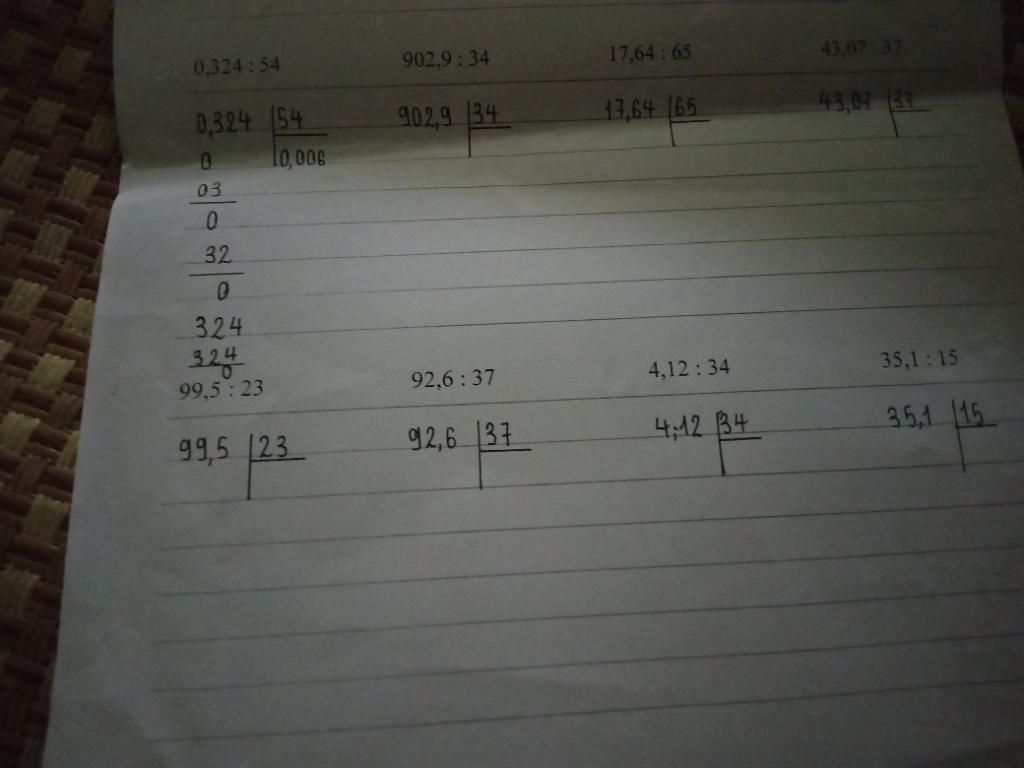 0,324 : 54 902,9 : 34 17,64 : 65 43,07 : 37
0,324 54 902,9 34 17,64 65 43,07 37
0 0,006
03
0
32
0
324
324
0
99,5 : 23 92,6 : 37 4,12 : 34 35,1 : 15
99,5 23 92,6 37 4,12 34 35,1 15